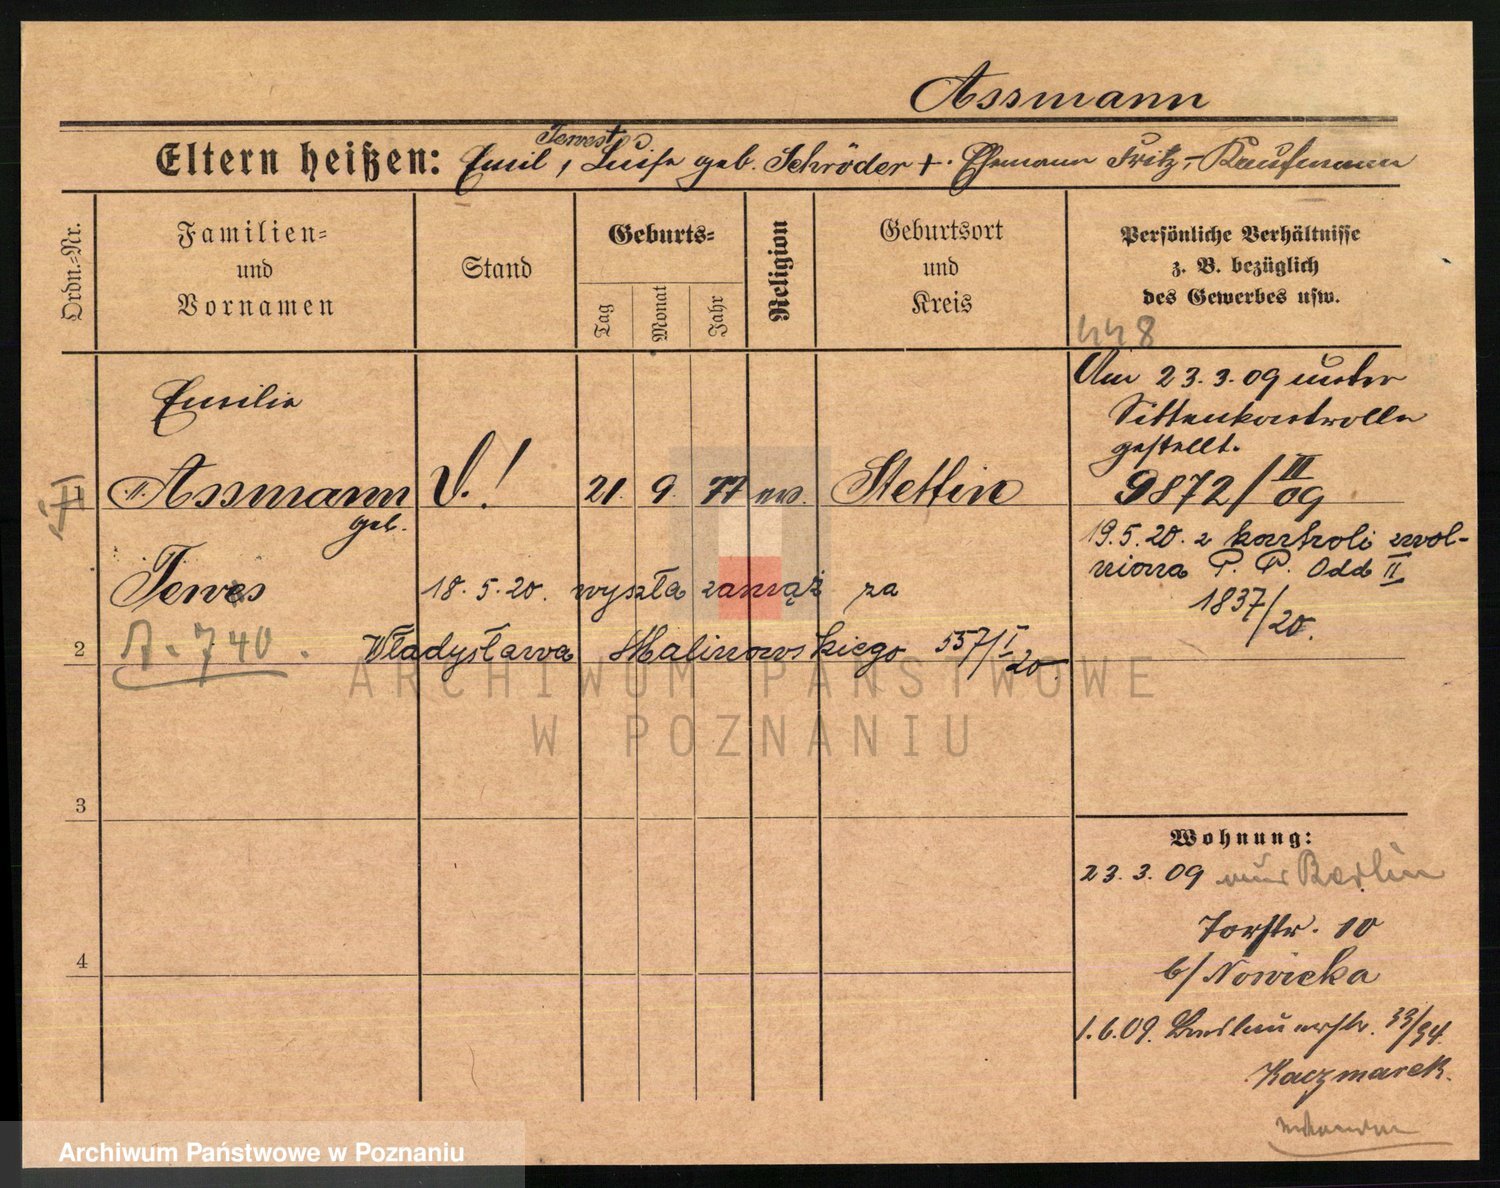 Assmann
Tewest
Eltern heißen: Emil, Luise geb. Schröder +. Ehemann Fritz, Kaufmann
Ordn.-Nr.
Familien-
und
Vornamen
Stand
Geburts-
Tag
Monat
Jahr
Religion
Geburtsort
und
Kreis
Persönliche Verhältnisse
z. B. bezüglich
des Gewerbes usw.
448
Am 23.3.09 unter
Sittenkontrolle
gestellt.
9872/III 09
19.5.20. z kontroli zwol-
niona P. P. Odd II
1837/20.
Emilie
1 Assmann V.! 21. 9. 77 ev. Stettin
geb.
Tewes 18.5.20. wyszła zamąż za
2 A. 740. Władysława Malinowskiego 557/I 20.
3
4
Wohnung:
23.3.09 aus Berlin
Torstr. 10
b/ Nowicka
1.6.09. Breslauerstr. 33/34.
Kaczmarek.
ARCHIWUM PAŃSTWOWE
W POZNANIU
Archiwum Państwowe w Poznaniu